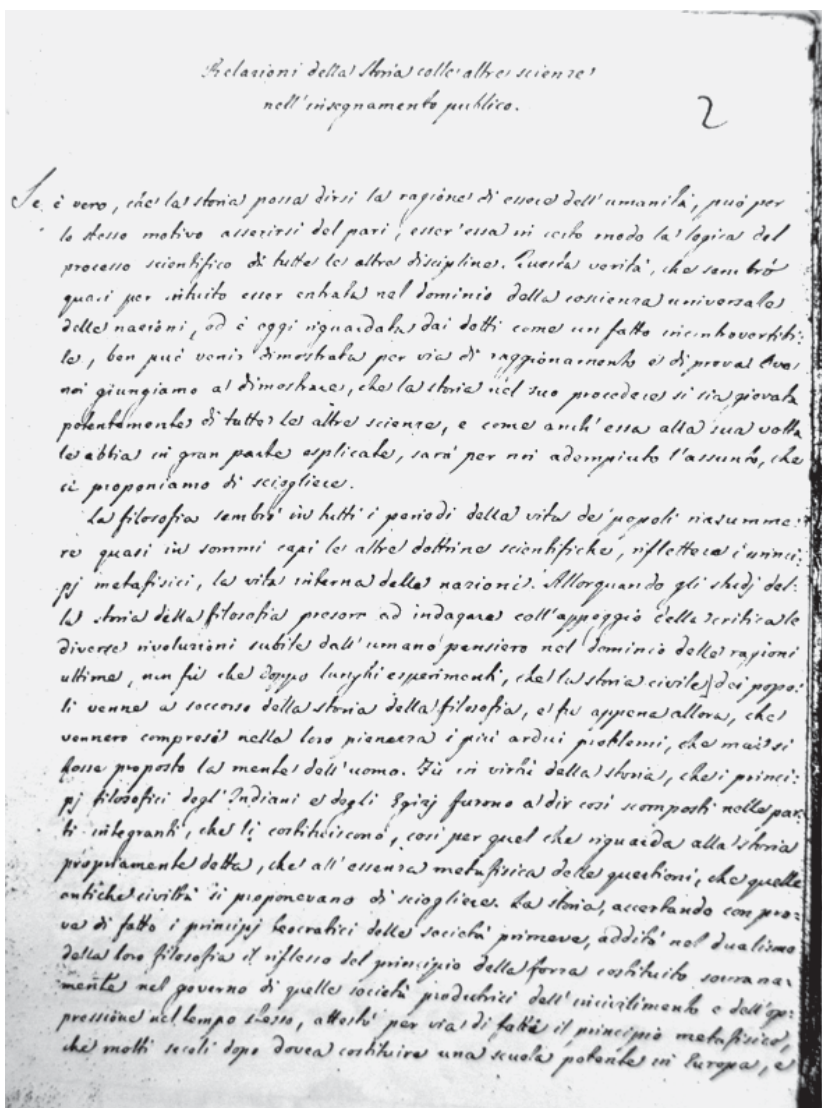 Relazioni della storia colle altre scienze
nell'insegnamento publico.
2
Se è vero, che la storia possa dirsi la ragione di essere dell'umanità, può per
lo stesso motivo asserirsi del pari, esser'essa in certo modo la logica del
processo scientifico di tutte le altre discipline. Questa verità, che sembrò
quasi per intuito esser entrata nel dominio della coscienza universale
delle nazioni, ed è oggi riguardata dai dotti come un fatto incontrovertibi:
le, ben può venir dimostrata per via di raggionamento e di prova. Ove
noi giungiamo a dimostrare, che la storia nel suo procedere si sia giovata
potentemente di tutte le altre scienze, e come anch'essa alla sua volta
le abbia in gran parte esplicate, sarà per noi adempiuto l'assunto, che
ci proponiamo di sciogliere.
La filosofia sembrò in tutti i periodi della vita de' popoli riassumme:
re quasi in sommi capi le altre dottrine scientifiche, riflettere i princi:
pj metafisici, la vita interna delle nazioni. Allorquando gli studj del:
la storia della filosofia presero ad indagare coll'appoggio della critica le
diverse rivoluzioni subite dall'umano pensiero nel dominio delle ragioni
ultime, non fù che doppo lunghi esperimenti, che la storia civile dei popo:
li venne a soccorso della storia della filosofia, e fu appena allora, che
vennero compresi nella loro pienezza i più ardui problemi, che mai si
fosse proposto la mente dell'uomo. Fù in virtù della storia, che i princi:
pj filosofici degl'Indiani e degli Egizj furono a dir così scomposti nelle par:
ti integranti, che li costituiscono, così per quel che riguarda alla storia
propriamente detta, che all'essenza metafisica delle questioni, che quelle
antiche civiltà si proponevano di sciogliere. La storia, accertando con pro:
va di fatto i principj teocratici delle società primeve, additò nel dualismo
della loro filosofia il riflesso del principio della forza costituito sovrana:
mente nel governo di quelle società produttrici dell'incivilimento e dell'op:
pressione nel tempo stesso, attestò per via di fatti il principio metafisico,
che molti secoli dopo dovea costituire una scuola potente in Europa, e